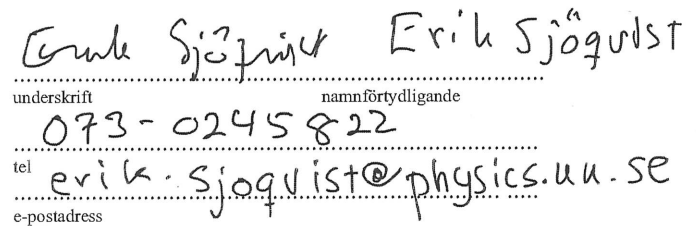 Erik Sjöqvist Erik Sjöqvist
underskrift namnförtydligande
073-0245822
tel erik.sjoqvist@physics.uu.se
e-postadress